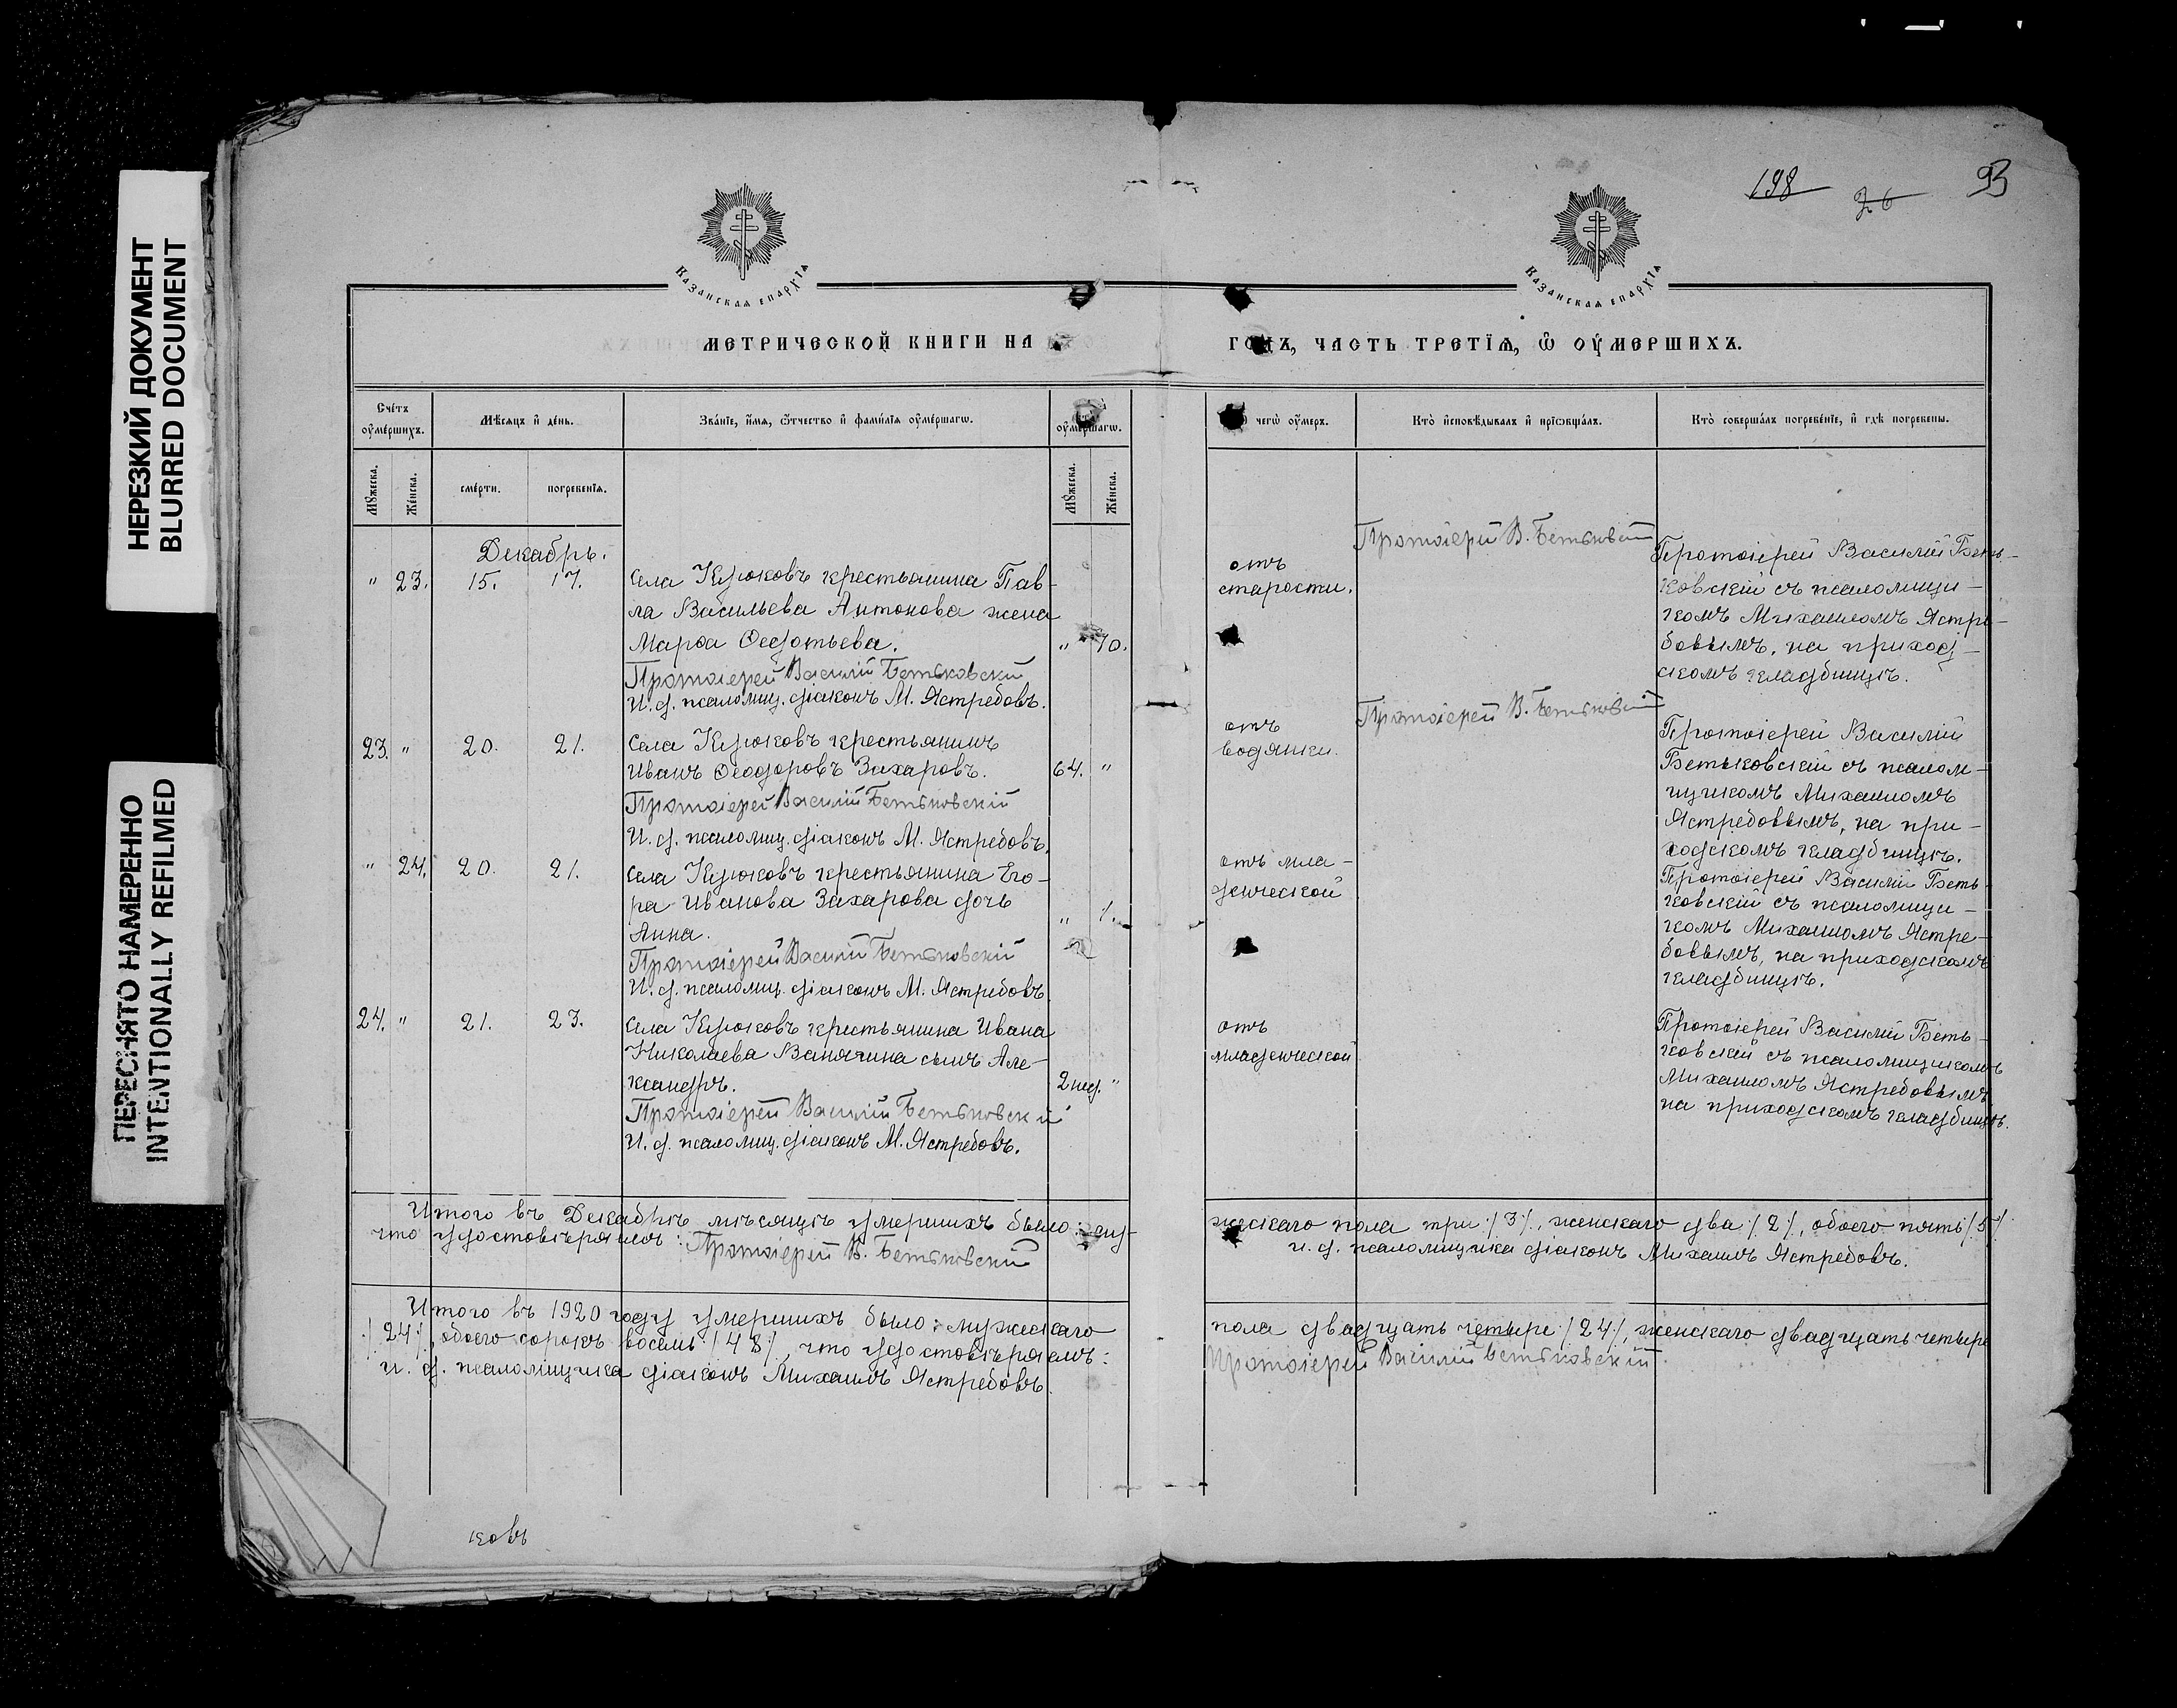 НЕРЕЗКИЙ ДОКУМЕНТ
BLURRED DOCUMENT
ПЕРЕСНЯТО НАМЕРЕННО
INTENTIONALLY REFILMED
198 26 93
Казанская епархїѧ
Казанская епархїѧ
МЕТРИЧЕСКОЙ КНИГИ НА
ГОДЪ, ЧАСТЬ ТРЕТЇѦ, Ѿ ОУМЕРШИХЪ.
Счетъ оумершихъ.
Мѣсяцъ и день.
Званїе, имя, ѿчество и фамилїя оумершагѡ.
оумершагѡ.
чегѡ оумеръ.
Кто исповѣдывалъ и прїѡбщалъ.
Кто совершалъ погребенїе, и гдѣ погребены.
Мꙋжеска.
Женска.
смерти.
погребенїя.
Мꙋжеска.
Женска.
Декабрь.
" 23. 15. 17.
Села Крюковъ крестьянина Пав-
ла Васильева Антонова жена
Марѳа Ѳедотьева. " 70.
Протоіерей Василій Бетьковскій
И. д. псаломщ. діаконъ М. Ястребовъ.
отъ
старости.
Протоіерей В. Бетьковскій
Протоіерей Василій Беть-
ковскій съ псаломщи-
комъ Михаиломъ Ястре-
бовымъ, на приход-
скомъ кладбищѣ.
23. " 20. 21.
Села Крюковъ крестьянинъ
Иванъ Ѳеодоровъ Захаровъ. 64. "
Протоіерей Василій Бетьковскій
И. д. псаломщ. діаконъ М. Ястребовъ.
отъ
водянки.
Протоіерей В. Бетьковскій
Протоіерей Василій
Бетьковскій съ псалом-
щикомъ Михаиломъ
Ястребовымъ, на при-
ходскомъ кладбищѣ.
" 24. 20. 21.
Села Крюковъ крестьянина Его-
ра Иванова Захарова дочь " 1.
Анна.
Протоіерей Василій Бетьковскій
И. д. псаломщ. діаконъ М. Ястребовъ.
отъ мла-
денческой
Протоіерей Василій Беть-
ковскій съ псаломщи-
комъ Михаиломъ Ястре-
бовымъ, на приходскомъ
кладбищѣ.
24. " 21. 23.
Села Крюковъ крестьянина Ивана
Николаева Ванячина сынъ Але-
ксандръ. 2 нед. "
Протоіерей Василій Бетьковскій
И. д. псаломщ. діаконъ М. Ястребовъ.
отъ
младенческой
Протоіерей Василій Беть-
ковскій съ псаломщикомъ
Михаиломъ Ястребовымъ
на приходскомъ кладбищѣ.
Итого въ Декабрѣ мѣсяцѣ умершихъ было: му-
жескаго пола три /3/, женскаго два /2/, обоего пять /5/
что удостовѣряемъ: Протоіерей В. Бетьковскій
и. д. псаломщика діаконъ Михаилъ Ястребовъ.
Итого въ 1920 году умершихъ было: мужескаго
пола двадцать четыре /24/, женскаго двадцать четыре
/24/, обоего сорокъ восемь /48/, что удостовѣряемъ:
Протоіерей Василій Бетьковскій
и. д. псаломщика діаконъ Михаилъ Ястребовъ.
ковъ